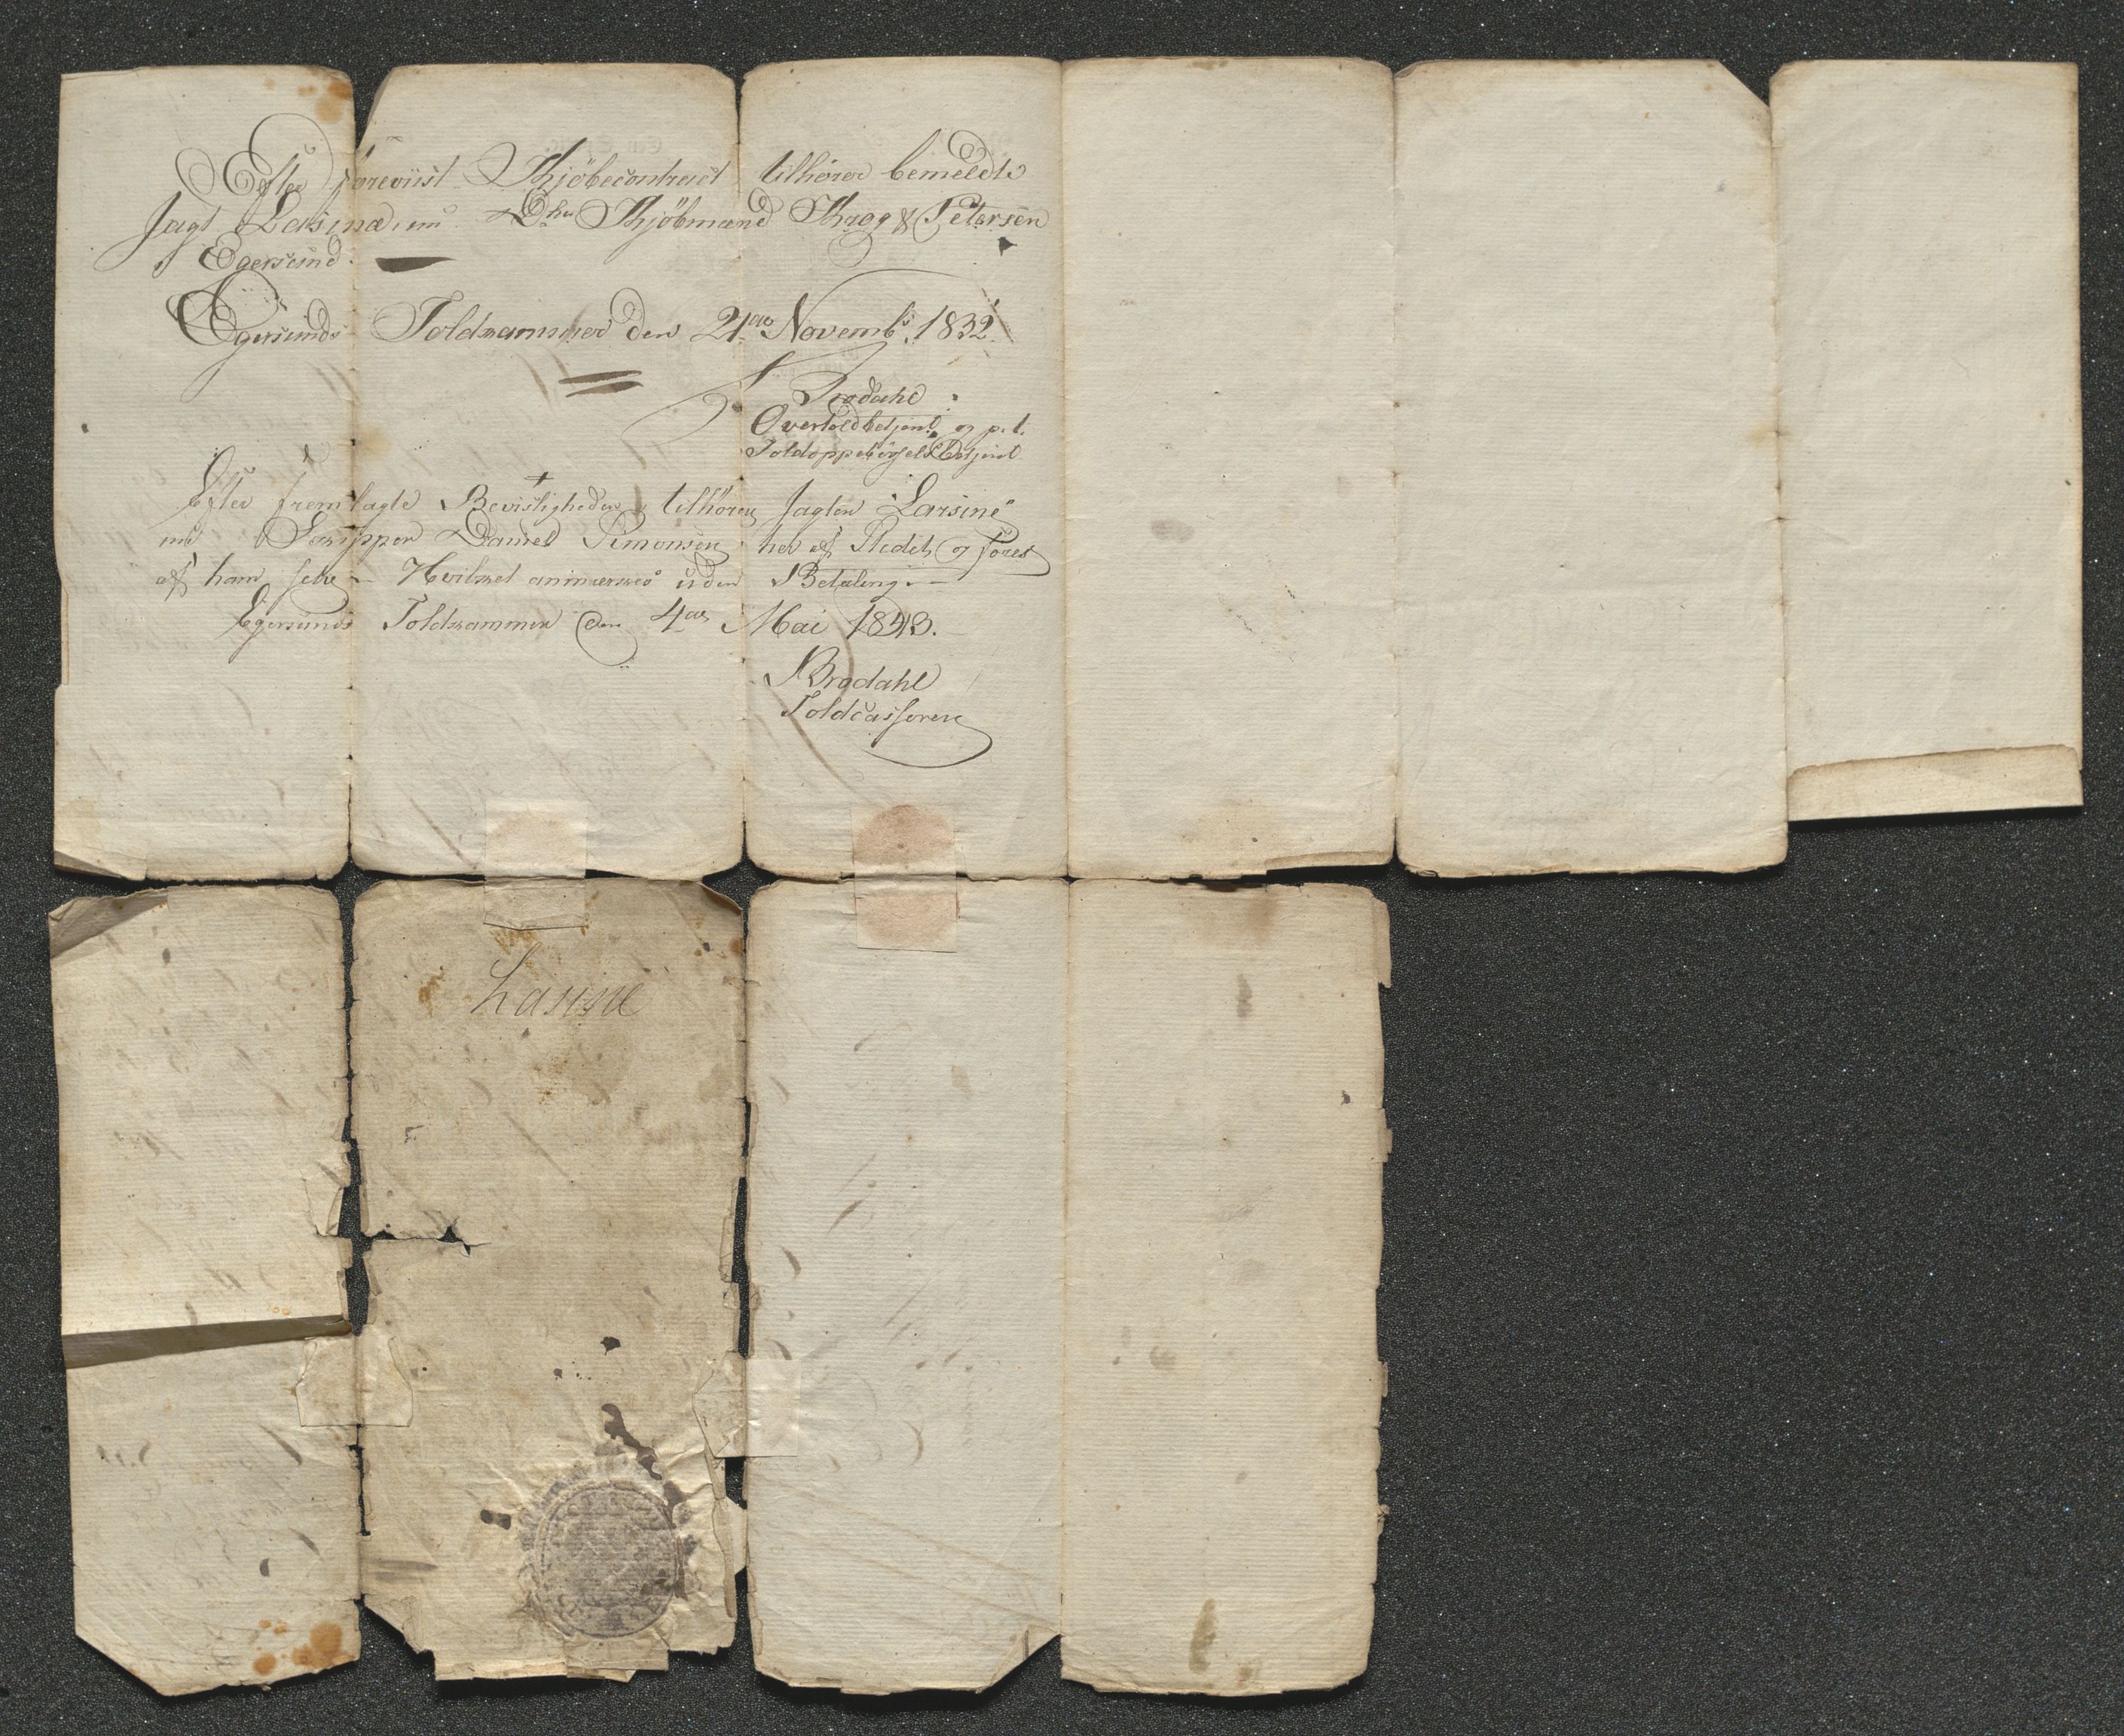 Efter foreviist Kjöbecontract tilhører bemeldte
Jagt Larsine, nu Dhrr Kjöbmænd Krog & Petersen
Egersund.
Egersunds Toldkammer den 21de Novembr 1832.
Brodahl
Overtoldbetjent og p. t.
Toldoppebörsels Betjent
Efter fremlagte Bevisligheder tilhører Jagten Larsine
nu Skipper Daniel Simonsen her af Stedet og föres
af ham selv – Hvilket anmærkes uden Betaling. –
Egersunds Toldkammer den 4de Mai 1843.
Brodahl
Toldcasserer
Larsine